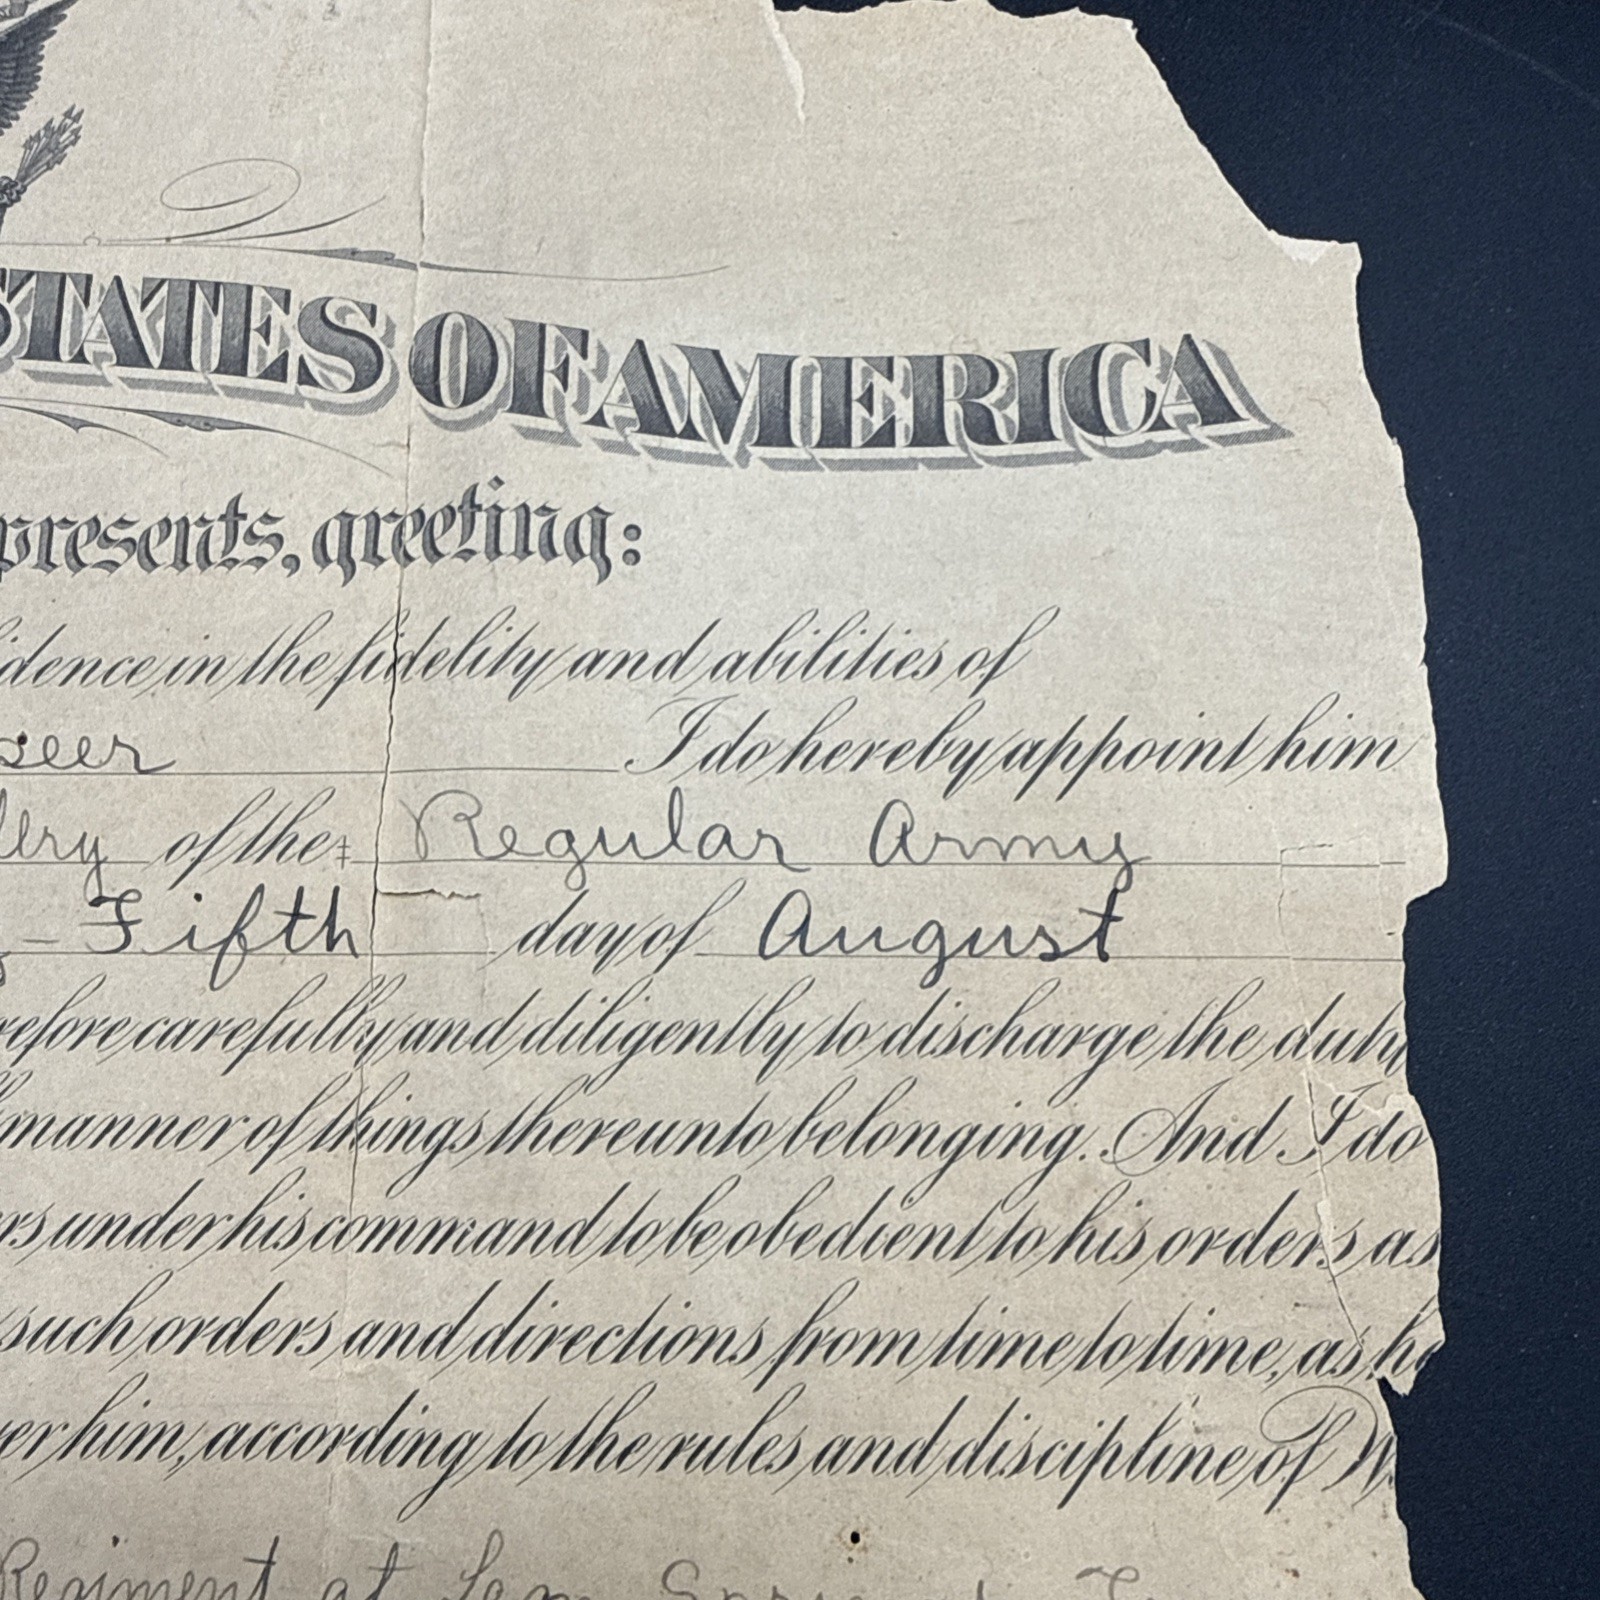 STATES OF AMERICA
presents, greeting:
idence in the fidelity and abilities of
seer I do hereby appoint him
llery of the: Regular Army
y-Fifth day of August
refore carefully and diligently to discharge the duty
manner of things thereunto belonging. And I do
rs under his command to be obedient to his orders as
such orders and directions from time to time, as he
ver him, according to the rules and discipline of W
Regiment at